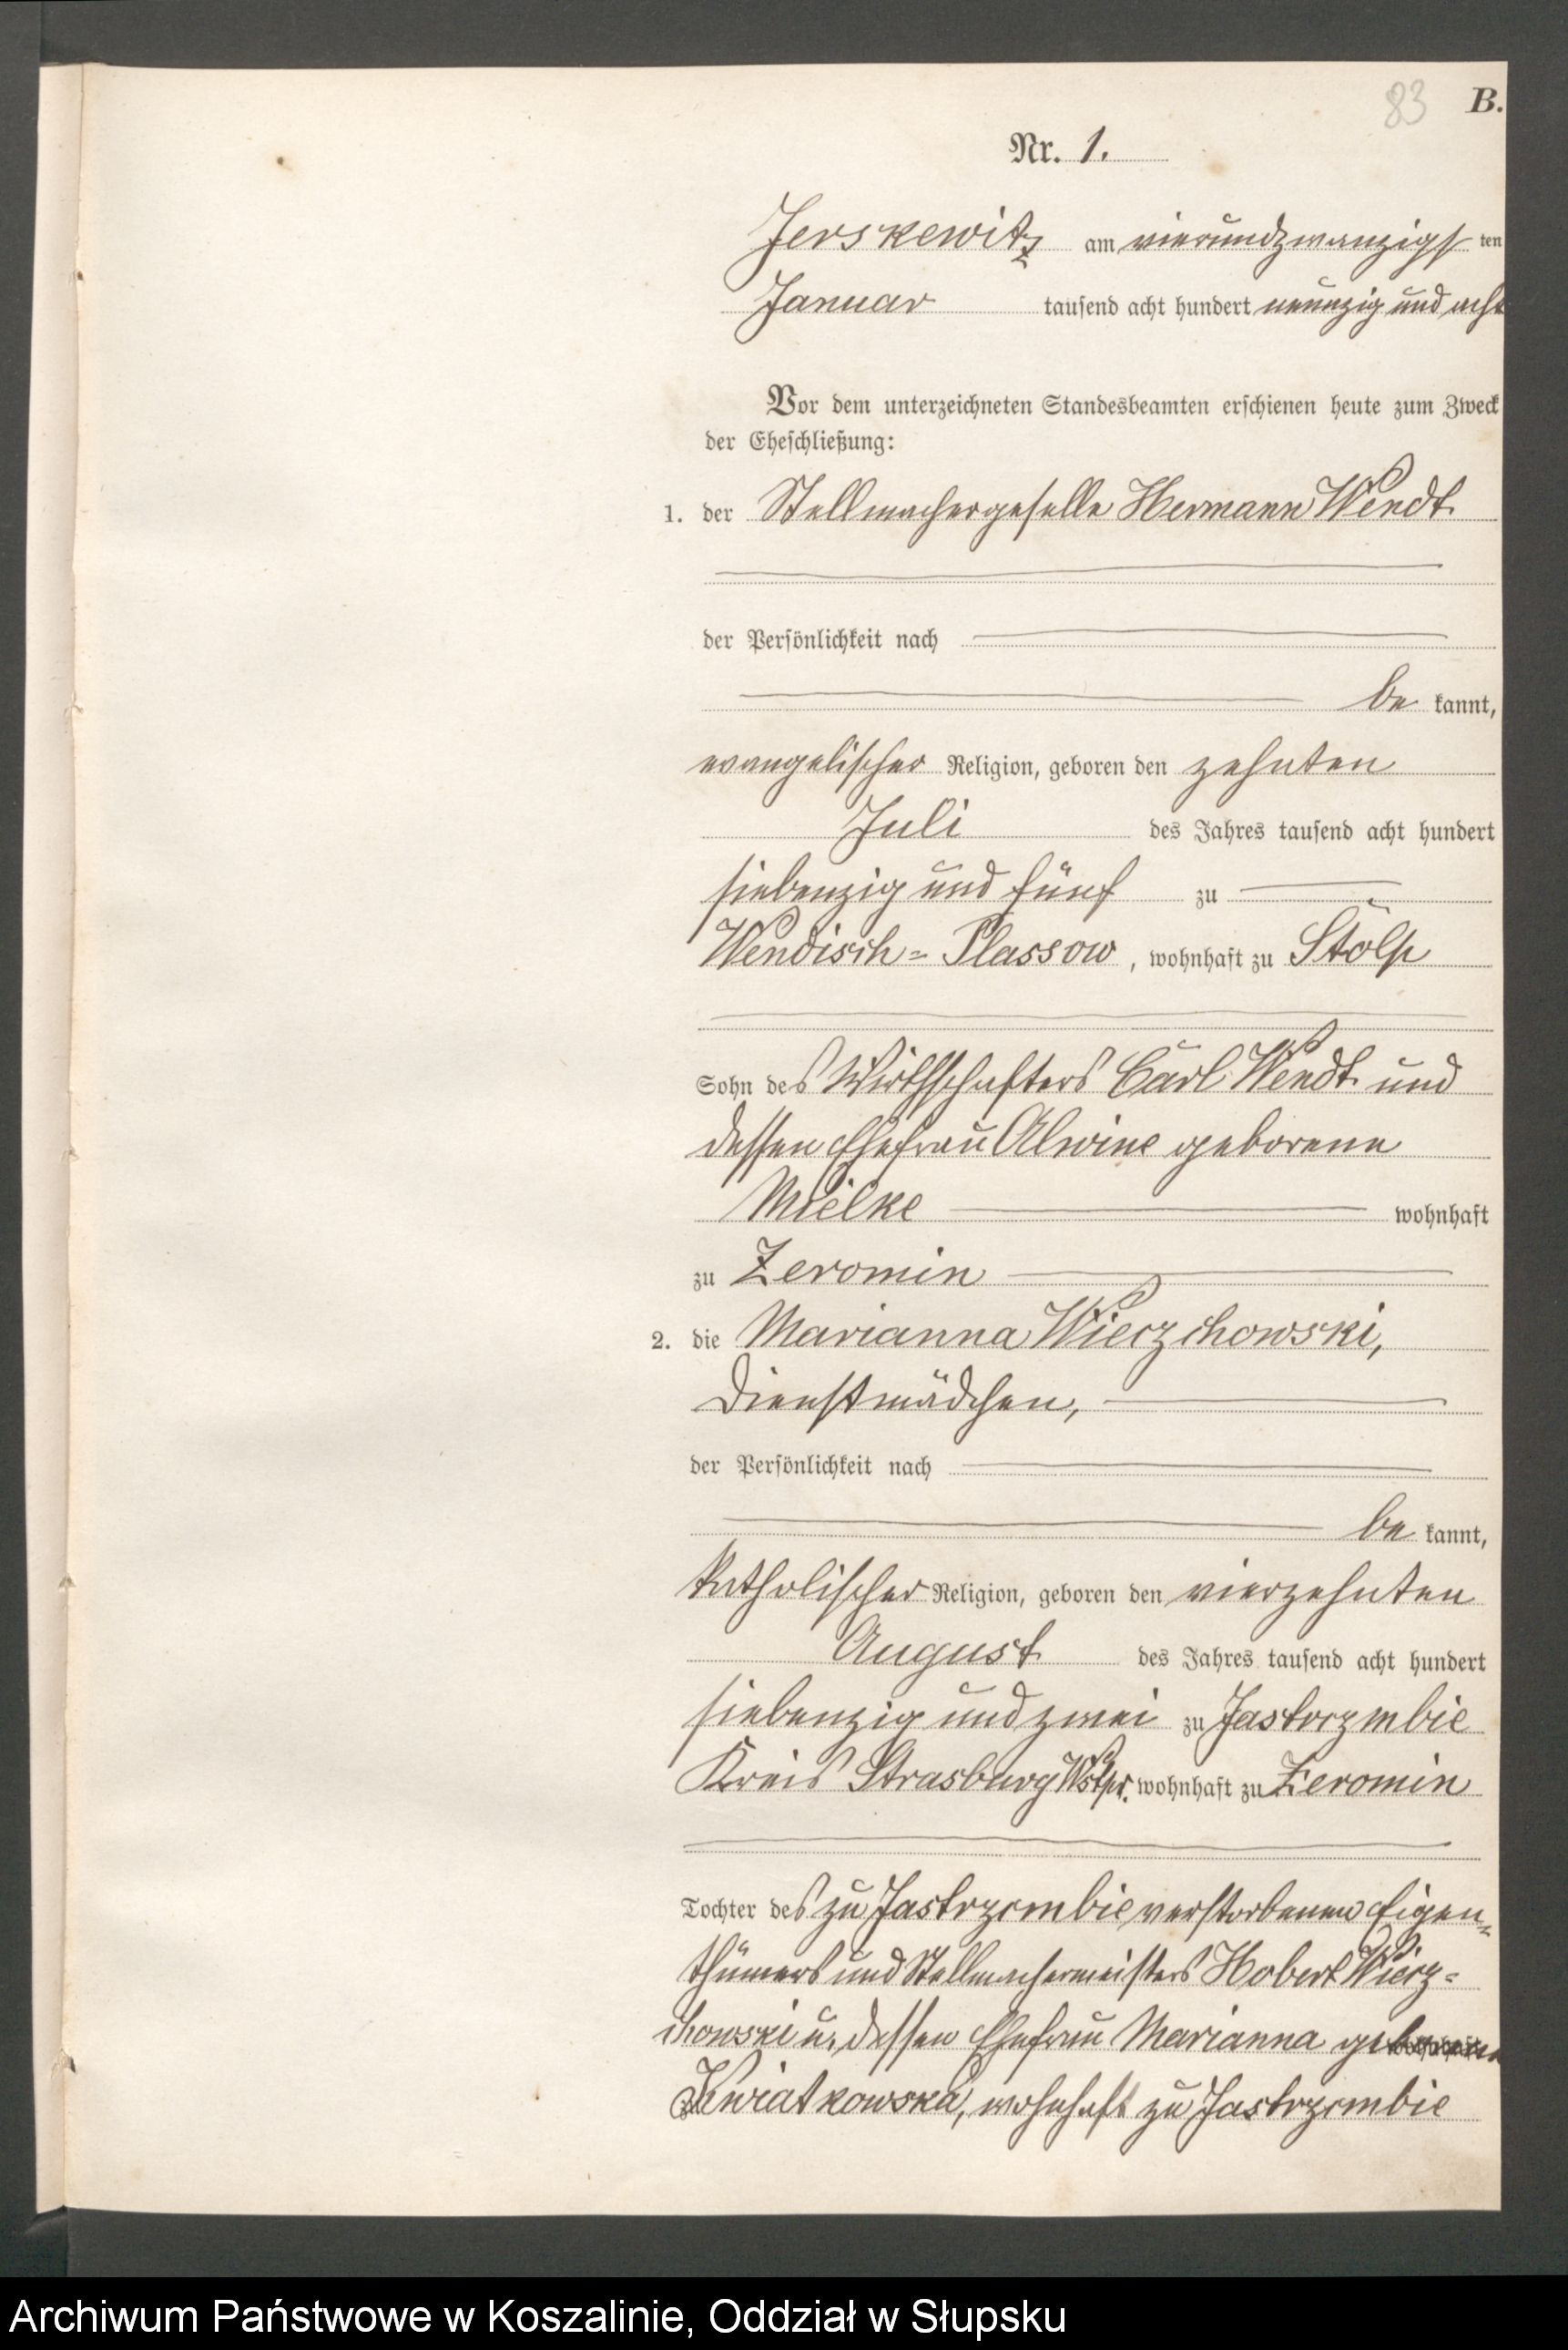 83 B.
Nr. 1.
Jerskewitz am vierundzwanzigs ten
Januar tausend acht hundert neunzig und acht
Vor dem unterzeichneten Standesbeamten erschienen heute zum Zweck
der Eheschließung:
1. der Stellmachergeselle Hermann Wendt
der Persönlichkeit nach
be kannt,
evangelischer Religion, geboren den zehnten
Juli des Jahres tausend acht hundert
siebenzig und fünf zu
Wendisch= Plassow, wohnhaft zu Stolp
Sohn des Wirthschafters Carl Wendt und
dessen Ehefrau Alwine geborene
Mielke wohnhaft
zu Zeromin
2. die Marianna Wierzchowski,
Dienstmädchen,
der Persönlichkeit nach
be kannt,
katholischer Religion, geboren den vierzehnten
August des Jahres tausend acht hundert
siebenzig und zwei zu Jastrzmbie
Kreis Strasburg Wstpr. wohnhaft zu Zeromin
Tochter des zu Jastrzembie verstorbenen Eigen=
thümers und Stellmachermeisters Hobert Wierz=
chowski u. dessen Ehefrau Marianna geborenen
Kwiatkowska, wohnhaft zu Jastrzembie
Archiwum Państwowe w Koszalinie, Oddział w Słupsku